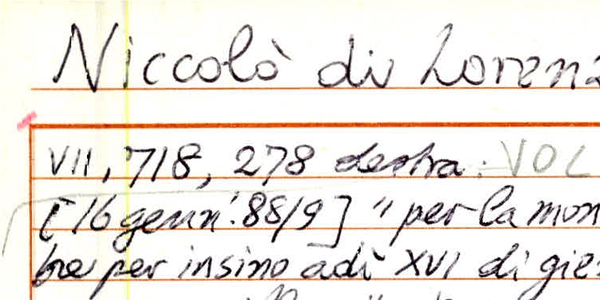 Niccolò di Loren
VII, 718, 278 destra: VOL
[16 genn: 88/9] "per la mon
per insino adì XVI di gie